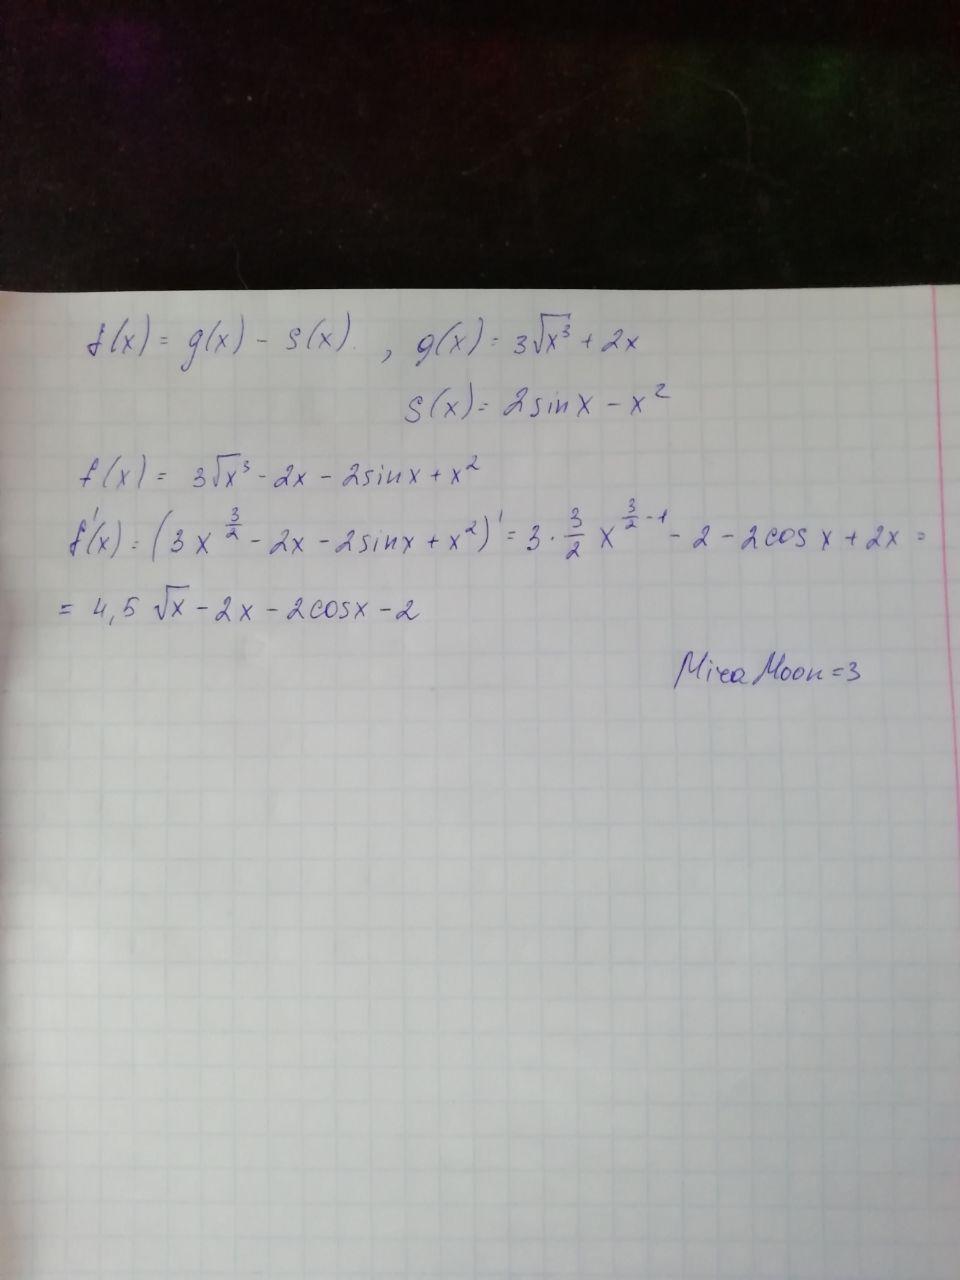 f(x) = g(x) - s(x). , g(x) = 3√x³ + 2x
s(x) = 2sinx - x²
f(x) = 3√x³ - 2x - 2sinx + x²
f'(x) = (3x^(3/2) - 2x - 2sinx + x²)' = 3 · 3/2 x^(3/2 - 1) - 2 - 2cos x + 2x =
= 4,5 √x - 2x - 2cosx - 2
Mira Moon = 3